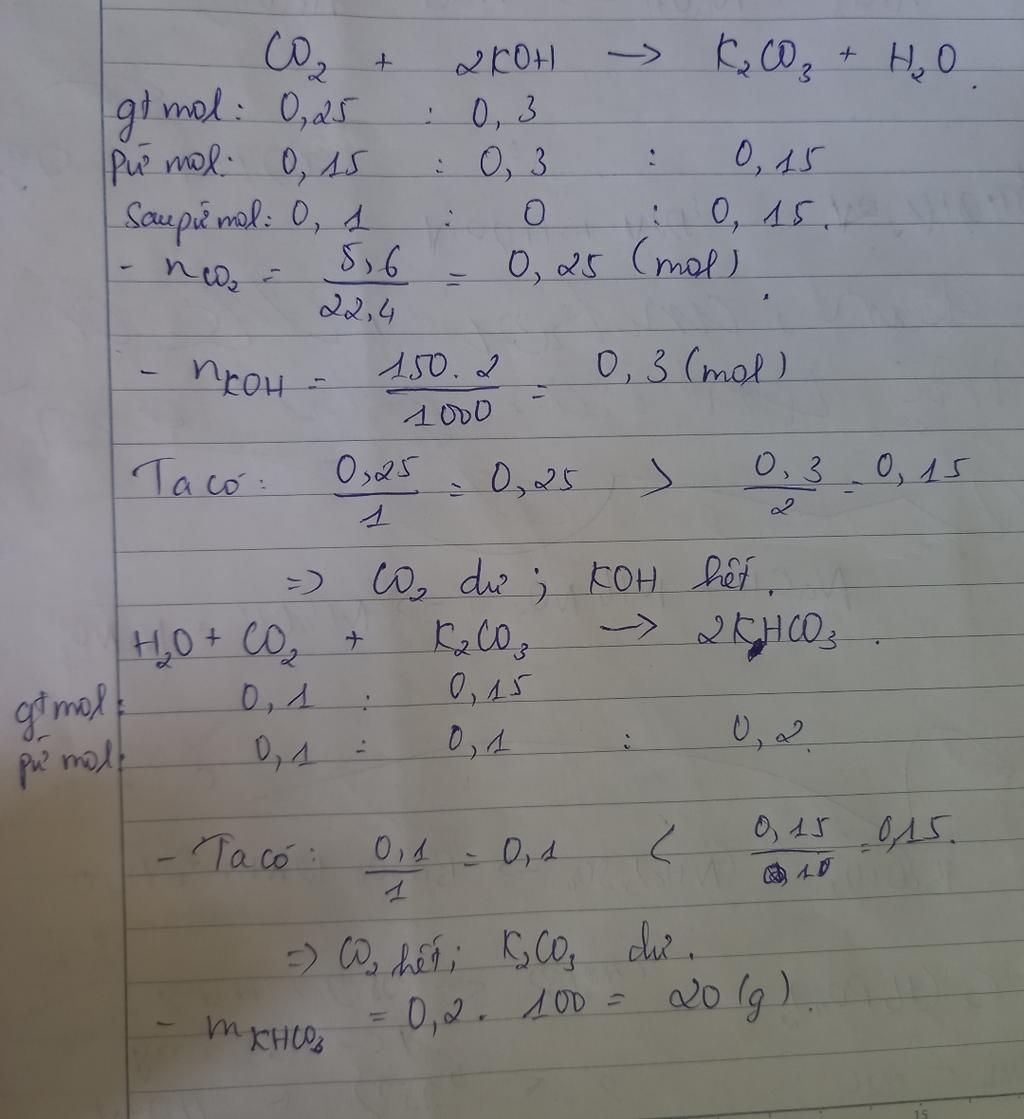 CO₂ + 2KOH → K₂CO₃ + H₂O.
gt mol: 0,25 : 0,3
pứ mol: 0,15 : 0,3 : 0,15
Sau pứ mol: 0,1 : 0 : 0,15.
- nCO₂ = 5,6/22,4 = 0,25 (mol).
- nKOH = 150.2/1000 = 0,3 (mol)
Ta có: 0,25/1 = 0,25 > 0,3/2 = 0,15
=> CO₂ dư ; KOH hết.
H₂O + CO₂ + K₂CO₃ → 2KHCO₃.
gt mol: 0,1 : 0,15
pứ mol: 0,1 : 0,1 : 0,2.
- Ta có: 0,1/1 = 0,1 < 0,15/1 = 0,15.
=> CO₂ hết; K₂CO₃ dư.
- mKHCO₃ = 0,2. 100 = 20 (g).
15